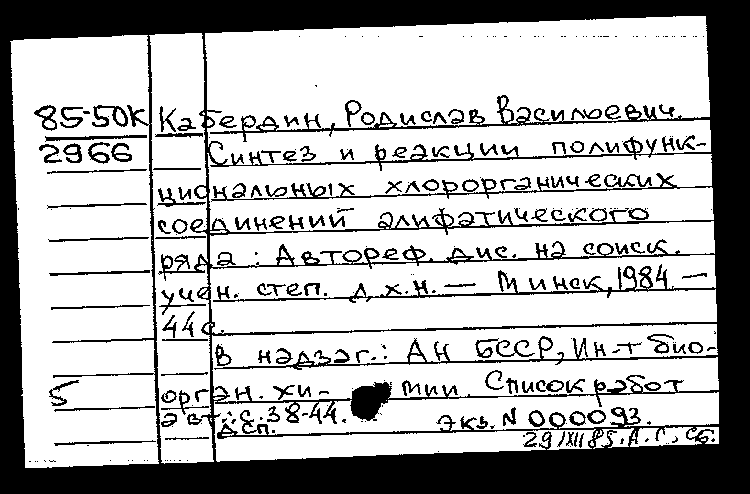 85-50К Кабердин, Родислав Васильевич.
2966 Синтез и реакции полифунк-
циональных хлорорганических
соединений алифатического
ряда : Автореф. дис. на соиск.
учен. степ. д.х.н. — Минск, 1984 —
44 с.
В надзаг.: АН БССР, Ин-т био-
5 орган. хи- мии. Список работ
авт.: с. 38-44.
ДСП. Экз. N 000093.
29/XII85. А.Г., сб.